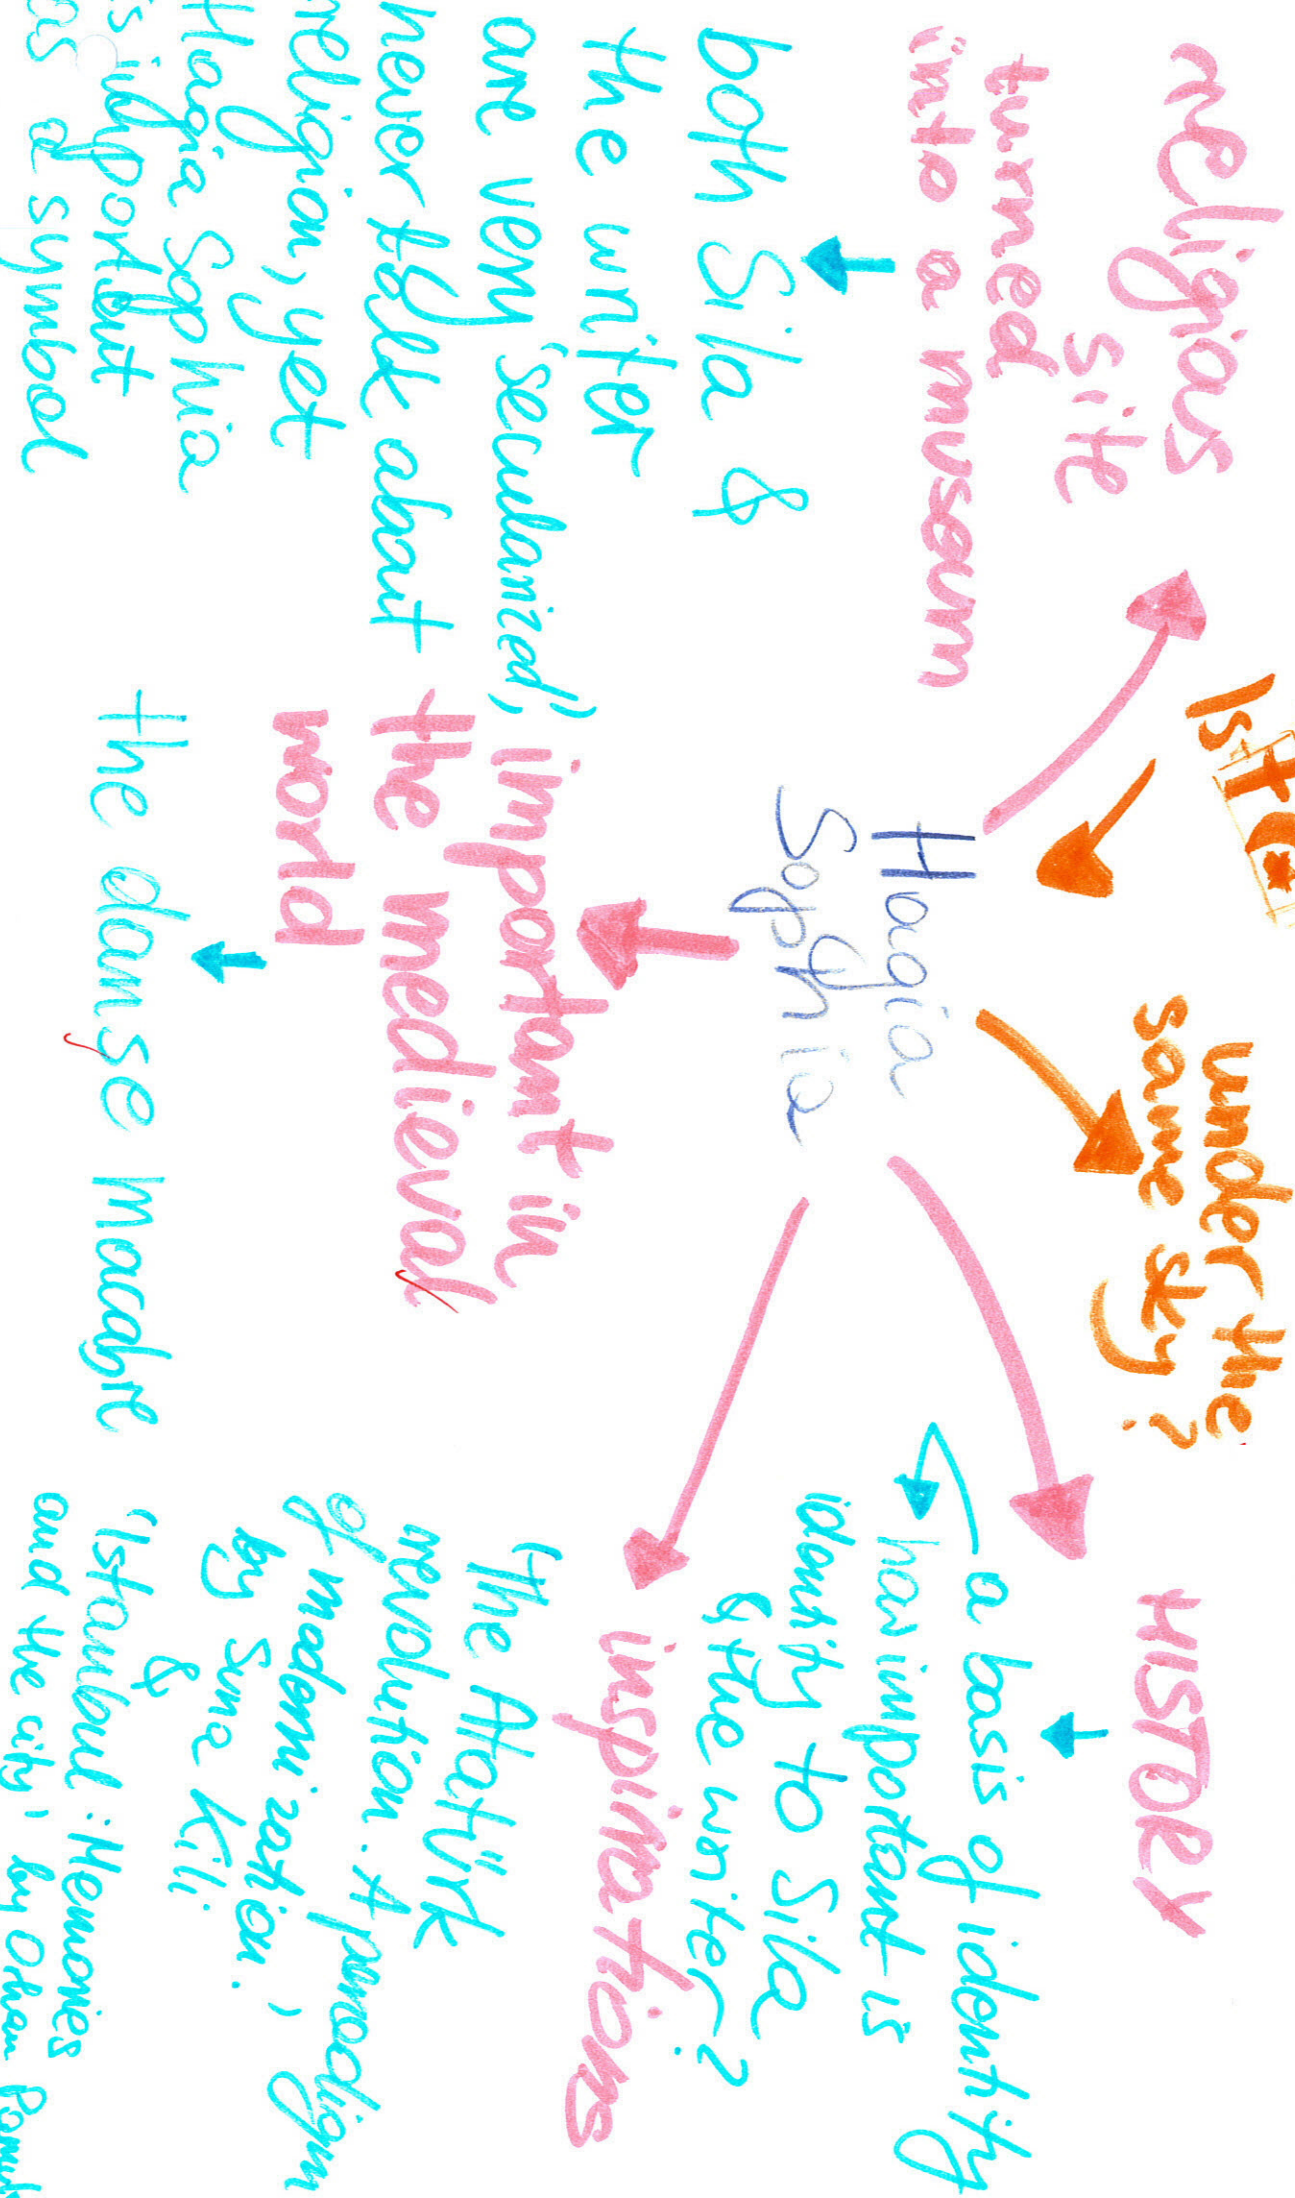 Ist
under the
same sky?
religious
site
turned
into a museum
both Sila &
the writer
are very 'secularized',
never talk about
religion, yet
Hagia Sophia
is important
as a symbol
Hagia
Sophia
important in
the medieval
world
the danse macabre
HISTORY
a basis of identity
how important is
identity to Sila
& the writer?
inspirations
'The Atatürk
revolution. A paradigm
of modernization',
by Suna Kili
&
'Istanbul: Memories
and the city', by Orhan Pamuk